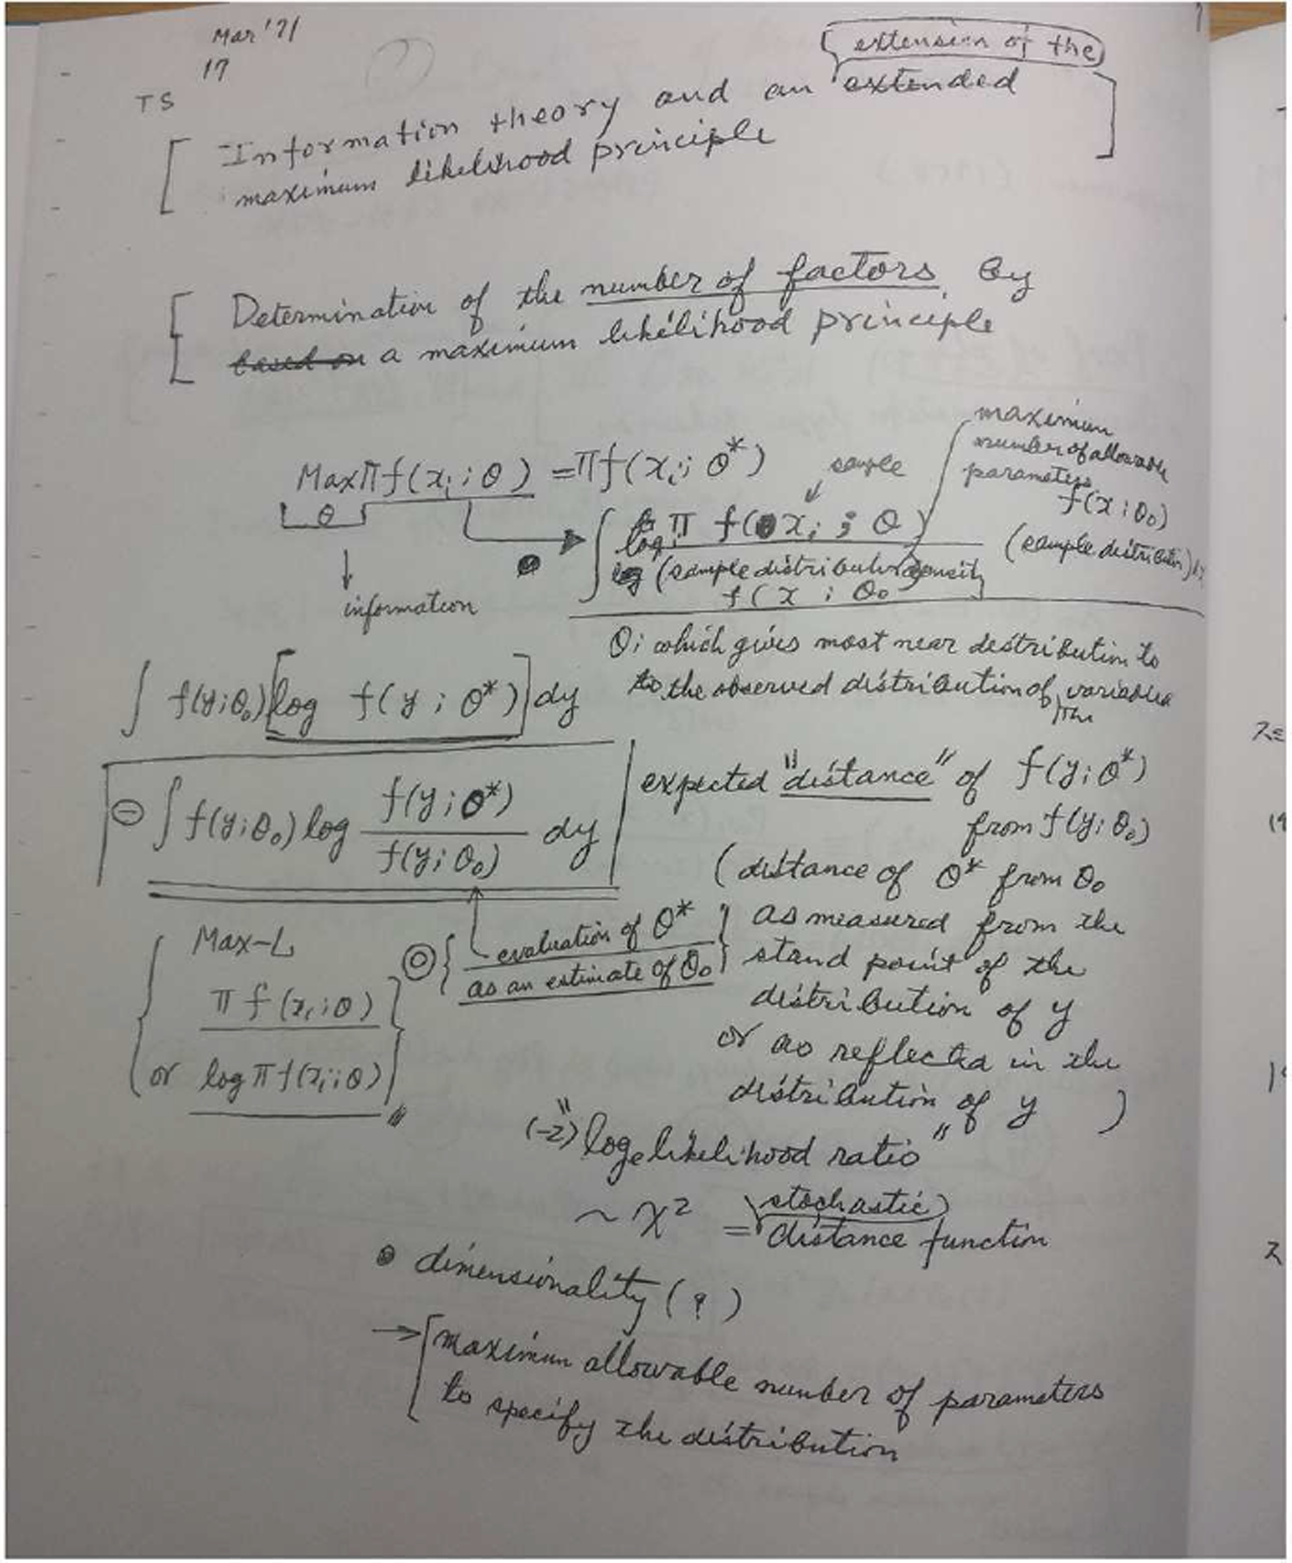 Mar '71
17
TS
extension of the
Information theory and an extended
maximum likelihood principle
Determination of the number of factors by
based on a maximum likelihood principle
Max π f(xᵢ ; θ) = π f(xᵢ ; θ*)
θ
sample
maximum
number of allowable
parameters
f(x ; θ₀)
log π f(xᵢ ; θ)
(sample distribution)
log (sample distribution density
f(x ; θ₀
information
θ; which gives most near distribution to
to the observed distribution of variables
∫ f(y;θ₀) [log f(y ; θ*)] dy
⊖ ∫ f(y;θ₀) log f(y;θ*) / f(y;θ₀) dy
expected "distance" of f(y;θ*)
from f(y;θ₀)
(distance of θ* from θ₀
as measured from the
stand point of the
distribution of y
or as reflected in the
distribution of y )
Max-L
π f(xᵢ;θ)
or log π f(xᵢ;θ)
◎ { evaluation of θ*
as an estimate of θ₀ }
(-2) "logₑ likelihood ratio"
~ χ² = stochastic
distance function
dimensionality (?)
→ maximum allowable number of parameters
to specify the distribution